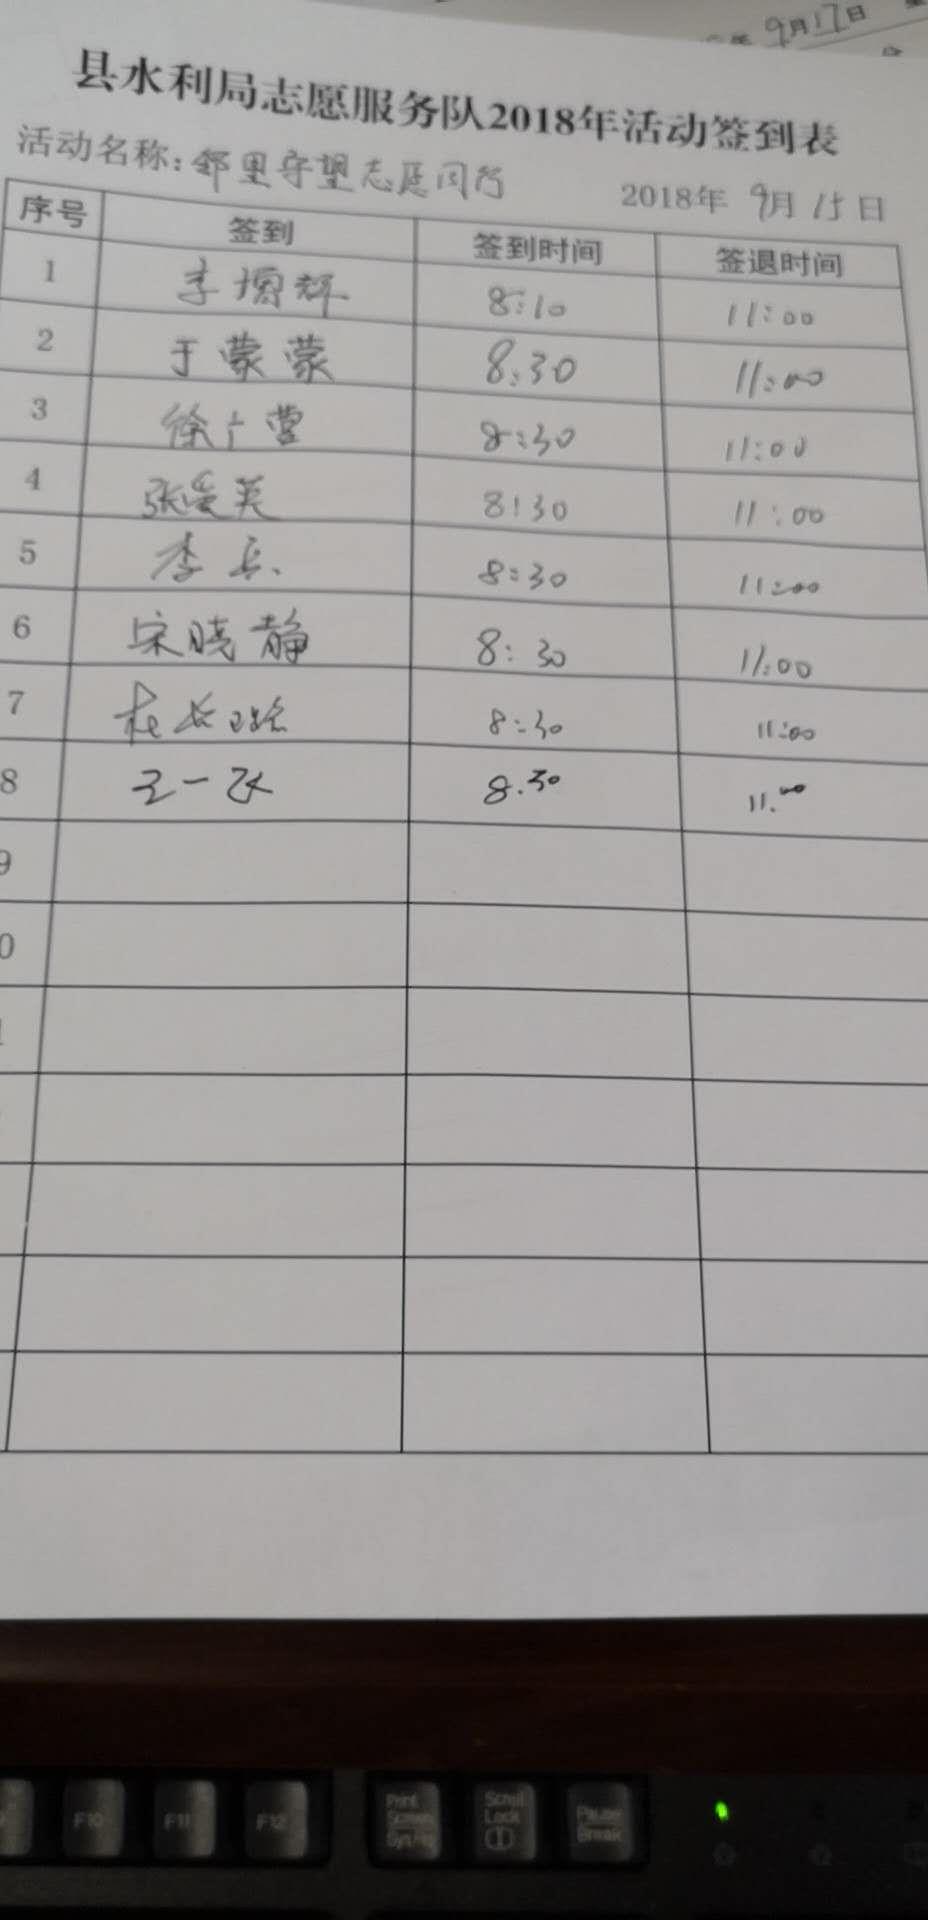 年 9月17日
县水利局志愿服务队2018年活动签到表
活动名称: 邻里守望志愿同行 2018年 9月 15日
序号 签到 签到时间 签退时间
1 李增辉 8:10 11:00
2 于蒙蒙 8:30 11:00
3 徐广营 8:30 11:00
4 张爱英 8:30 11:00
5 李兵 8:30 11:00
6 宋晓静 8:30 11:00
7 8:30 11:00
8 8.30 11.00
9
0
F10 F11 F12 Print Screen SysRq Scroll Lock Pause Break